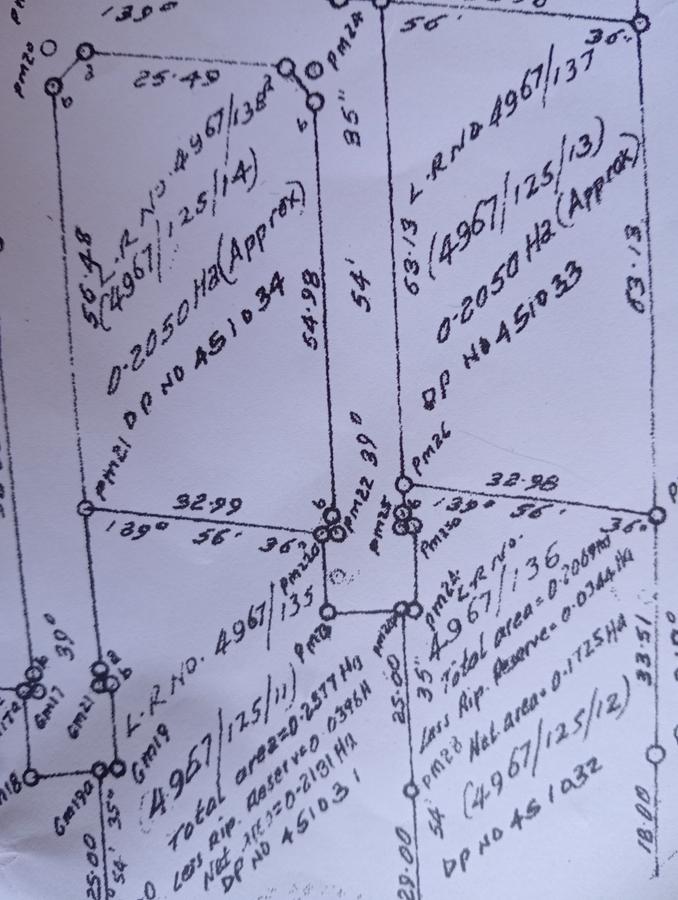 139°
PM20
3
b
25.49
2
b
PM24
35"
56'
36"
L.R NO. 4967/138
(4967/125/14)
0.2050 Ha (Approx)
DP NO 451034
56.48
54.98
54'
39°
L.R NO 4967/137
(4967/125/13)
0.2050 Ha (Approx)
DP NO 451033
63.13
63.13
PM21
32.99
139° 56' 36"
b
PM22
PM26
32.98
139° 56' 36"
b
PM25
39°
a
b
GM21
GM17
GM19
GM19a
35"
54'
25.00
L.R NO. 4967/135
(4967/125/11)
Total area=0.2577 Ha
Less Rip. Reserve=0.0396H
Net Area=0.2181 Ha
DP NO 451031
PM23
25.00
35"
54'
29.00
PM28
L.R NO.
4967/136
Total area=0.2069Ha
Less Rip. Reserve=0.0344Ha
Net area=0.1725Ha
(4967/125/12)
DP NO 451032
33.51
18.00